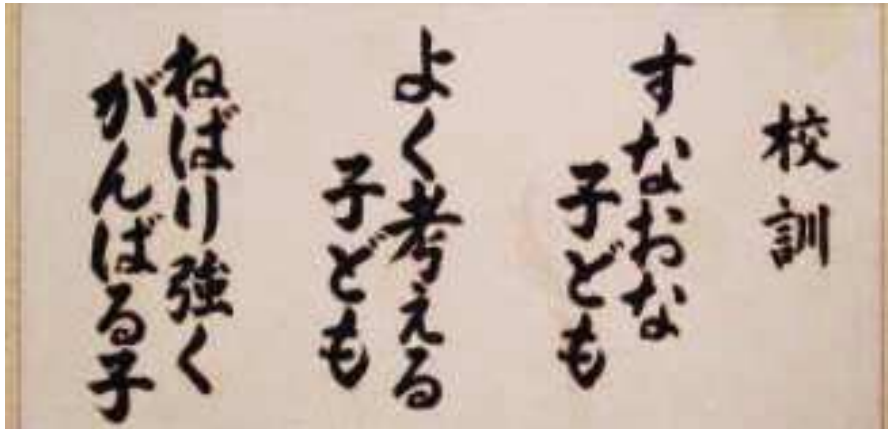 校訓
すなおな
子ども
よく考える
子ども
ねばり強く
がんばる子